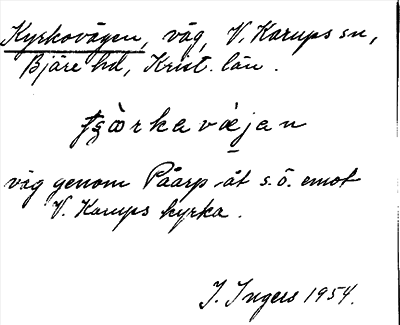 Kyrkovägen, väg, V. Karups sn,
Bjäre hd, Krist. län.
väg genom Påarp åt s.ö. emot
V. Karups kyrka.
I. Ingers 1954.